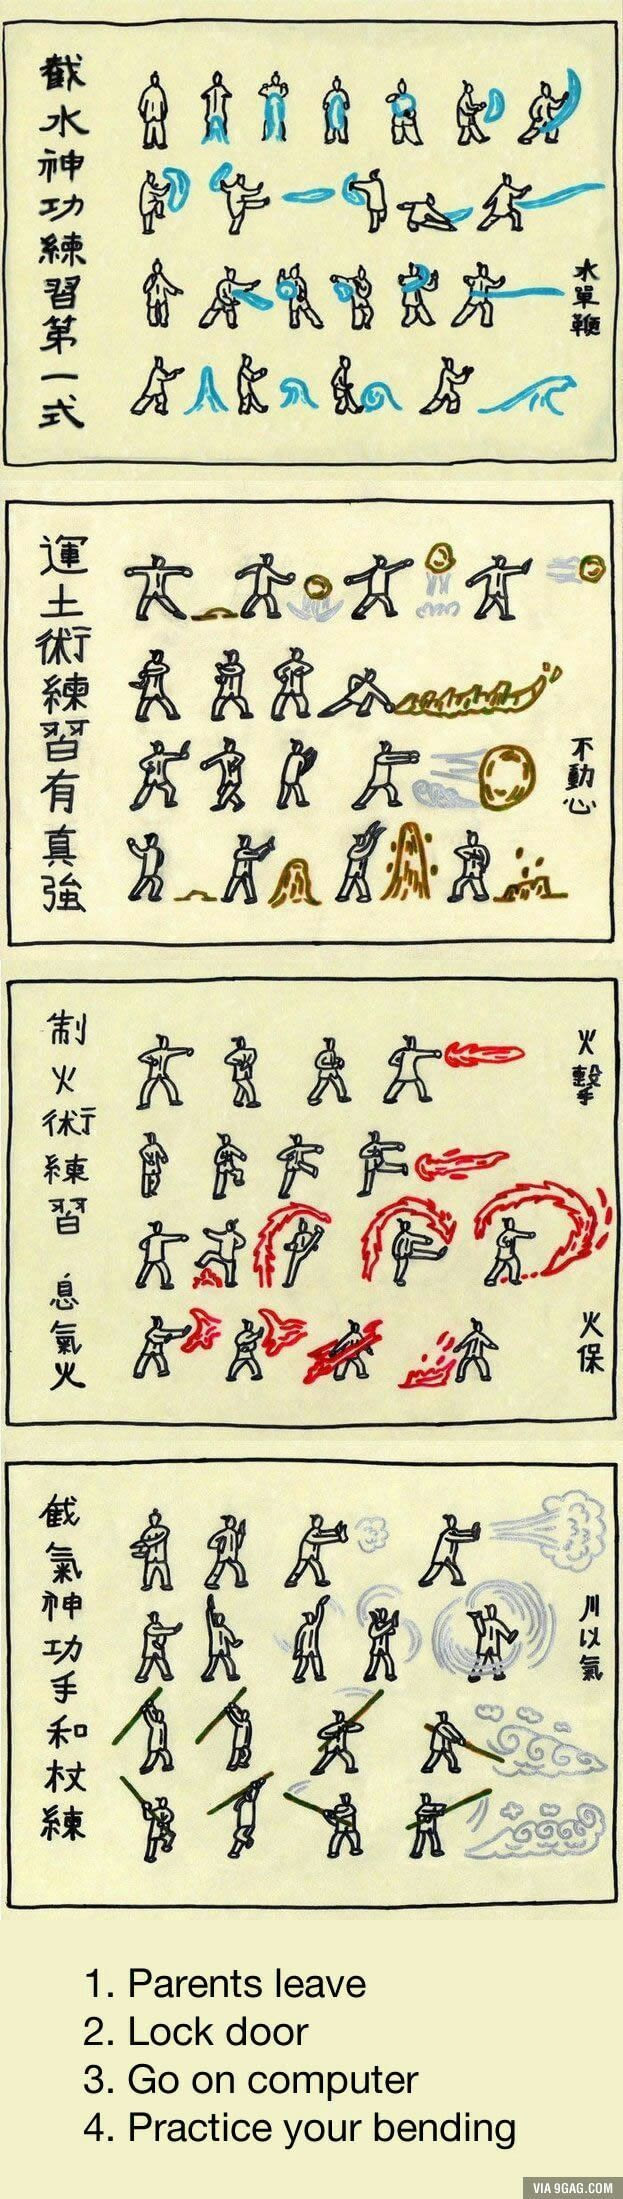 截水神功練習第一式
水單鞭
運土術練習有真強
不動心
制火術練習 息氣火
火擊
火保
截氣神功手和杖練
川以氣
1. Parents leave
2. Lock door
3. Go on computer
4. Practice your bending
VIA 9GAG.COM